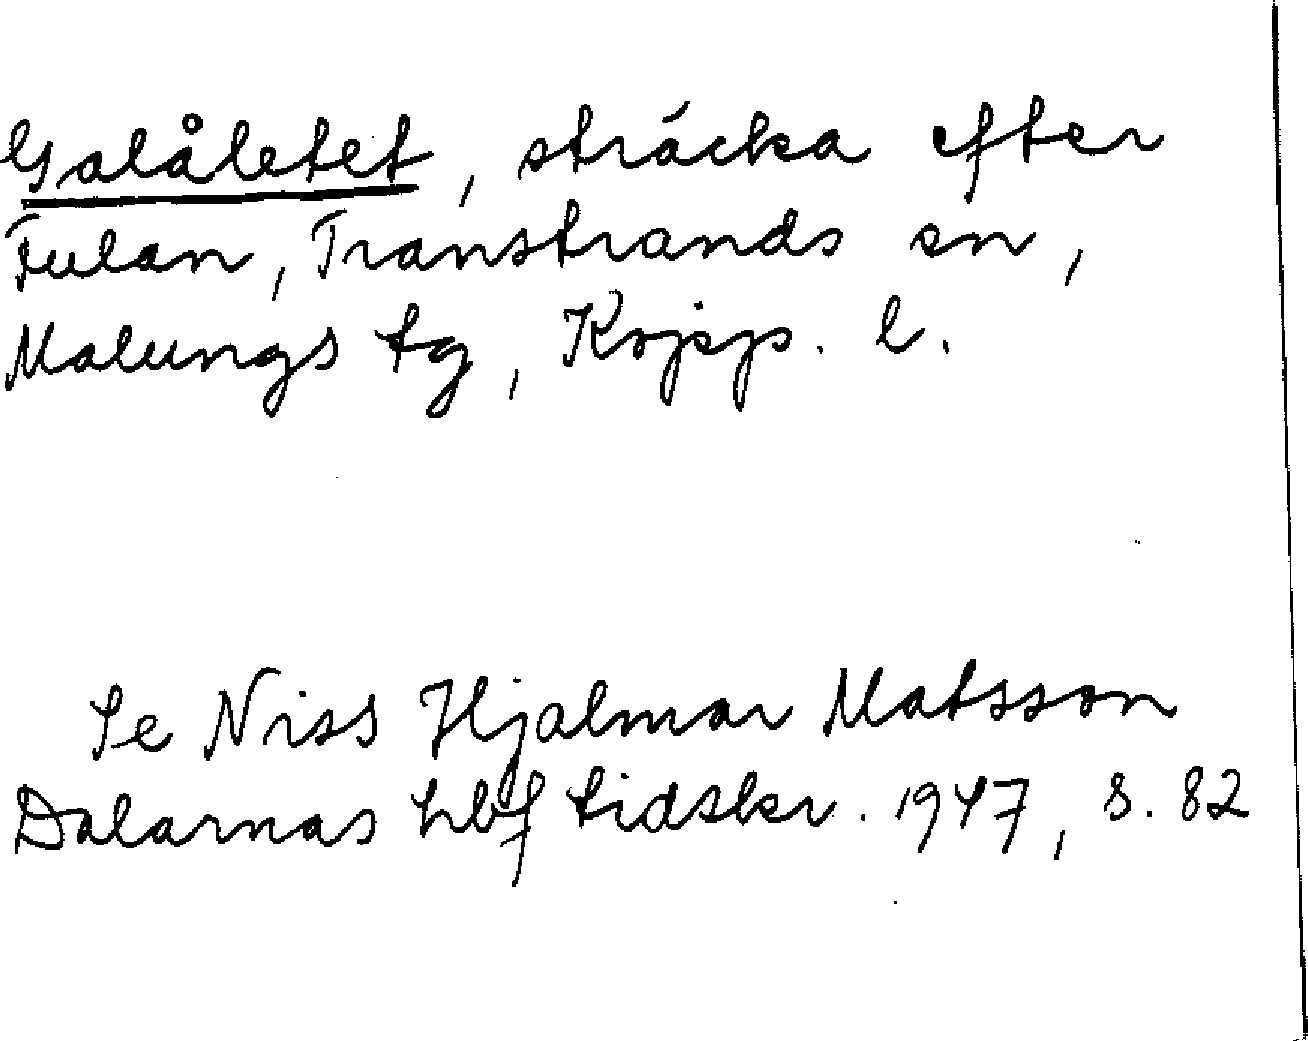 Galåletet, sträcka efter
Fulan, Transtrands sn,
Malungs tg, Kopp. l.
Se Niss Hjalmar Matsson
Dalarnas hbf tidskr. 1947, s. 82